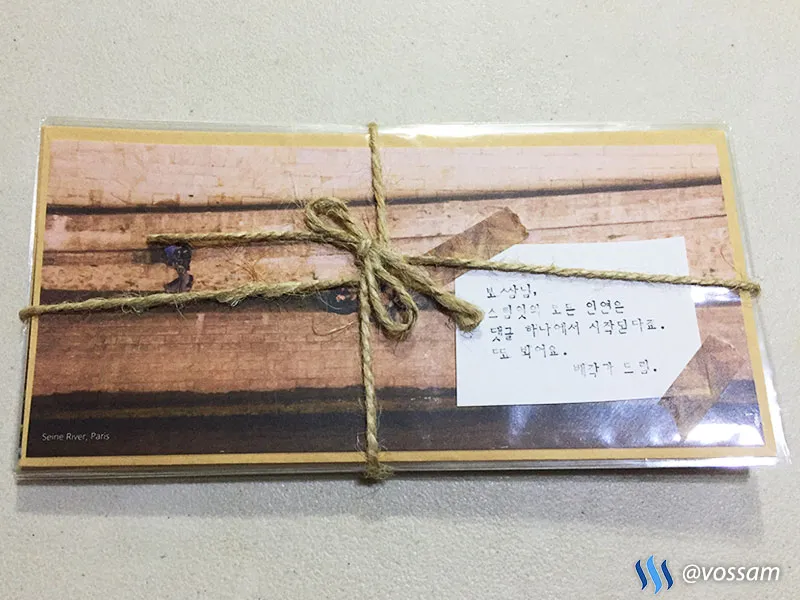 보상님,
스팀잇의 모든 인연은
댓글 하나에서 시작된다죠.
또 봬어요.
배작가 드림.
Seine River, Paris
@vossam